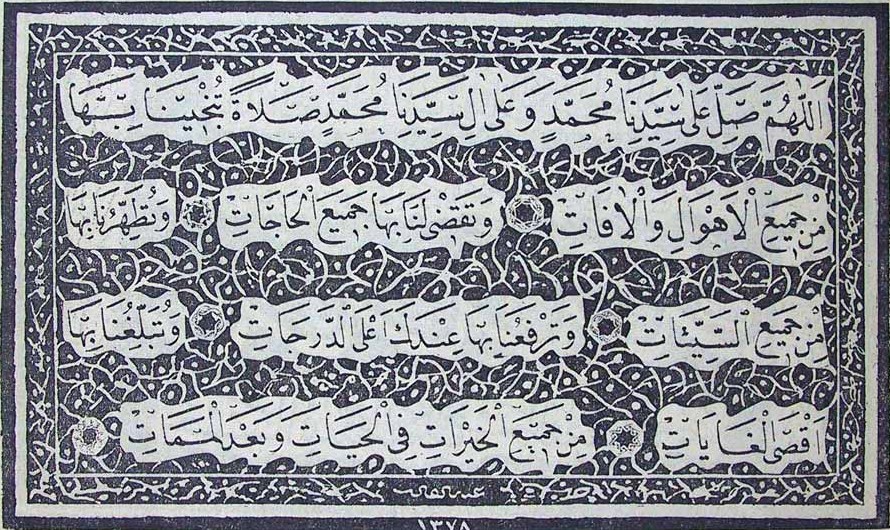 اَللّٰهُمَّ صَلِّ عَلٰى سَيِّدِنَا مُحَمَّدٍ وَعَلٰى اٰلِ سَيِّدِنَا مُحَمَّدٍ صَلَاةً تُنْجِيْنَا بِهَا
مِنْ جَمِيْعِ الْاَهْوَالِ وَالْاٰفَاتِ وَتَقْضِىْ لَنَا بِهَا جَمِيْعَ الْحَاجَاتِ وَتُطَهِّرُنَا بِهَا
مِنْ جَمِيْعِ السَّيِّئَاتِ وَتَرْفَعُنَا بِهَا عِنْدَكَ اَعْلَى الدَّرَجَاتِ وَتُبَلِّغُنَا بِهَا
اَقْصَى الْغَايَاتِ مِنْ جَمِيْعِ الْخَيْرَاتِ فِى الْحَيَاتِ وَبَعْدَ الْمَمَاتِ
١٣٧٨